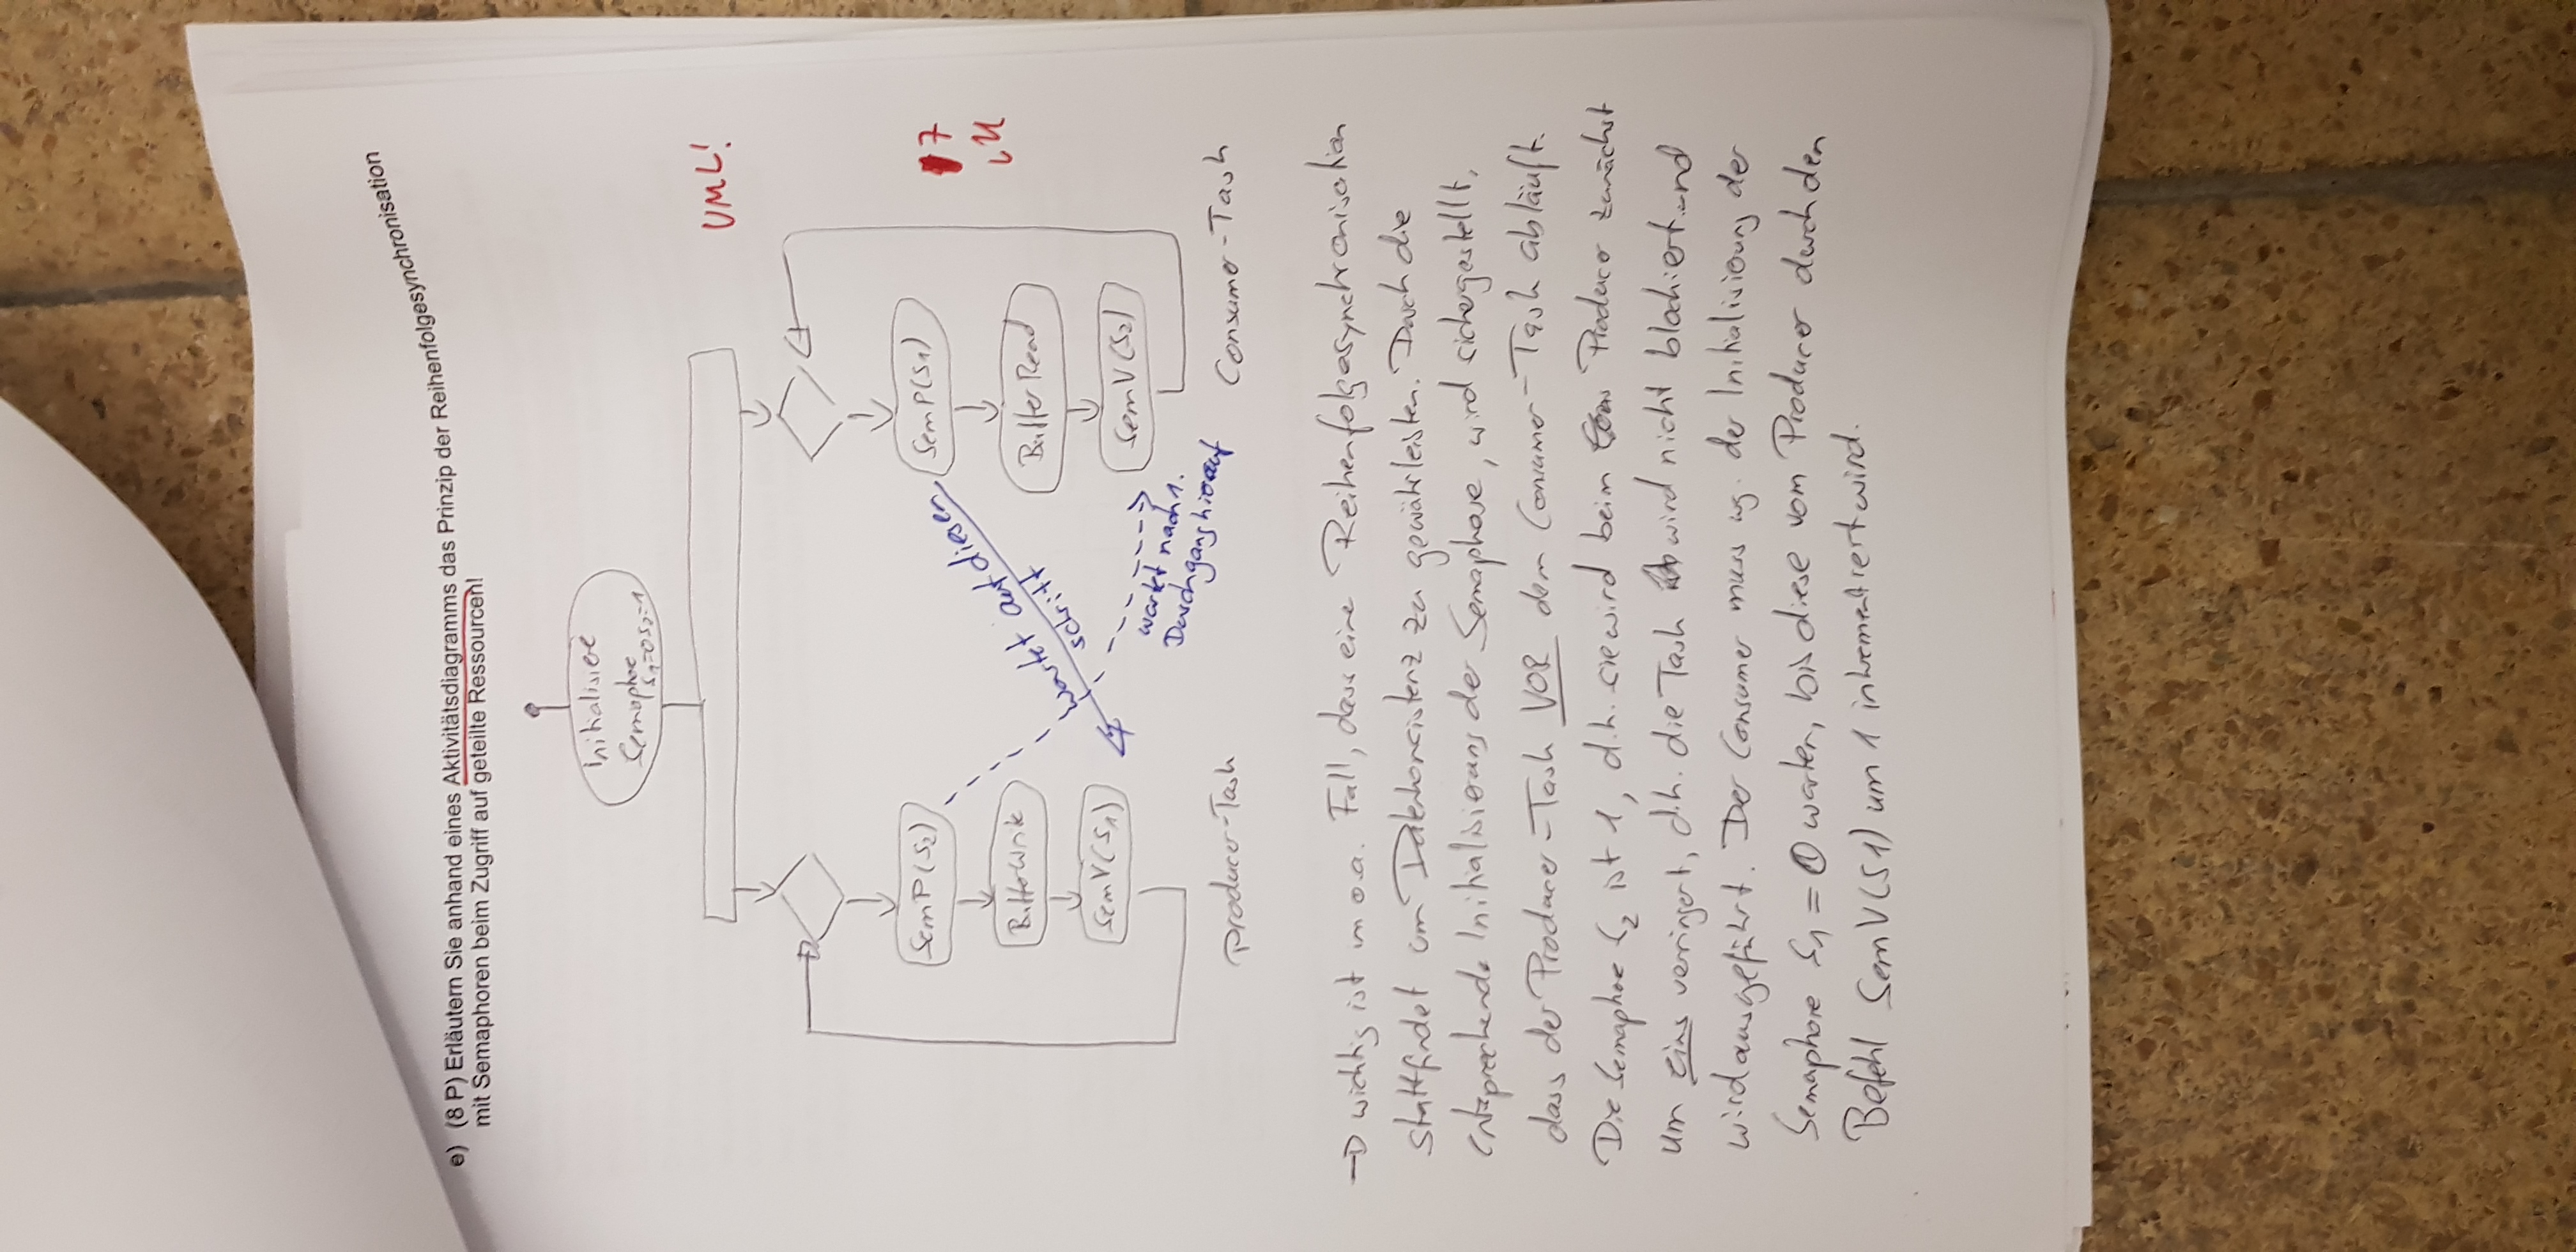 e) (8 P) Erläutern Sie anhand eines Aktivitätsdiagramms das Prinzip der Reihenfolgesynchronisation
mit Semaphoren beim Zugriff auf geteilte Ressourcen!
Initialisiere
Semaphore
S1=0 S2=1
UML!
SemP(S2)
SemP(S1)
7
BufferWrite
Buffer Read
SemV(S1)
SemV(S2)
wartet auf diesen
schritt
wartet nach 1.
Durchgang hierauf
Producer-Task
Consumer-Task
→ wichtig ist im o.a. Fall, dass eine Reihenfolgesynchronisation
stattfindet um Datenkonsistenz zu gewährleisten. Durch die
entsprechende Initialisierung der Semaphore, wird sichergestellt,
dass der Producer-Task VOR dem Consumer-Task abläuft.
Die Semaphore S2 ist 1, d.h. sie wird beim Producer zunächst
um eins verringert, d.h. die Task wird nicht blockiert und
wird ausgeführt. Der Consumer muss wg. der Initialisierung der
Semaphore S1 = 0 warten, bis diese vom Producer durch den
Befehl SemV(S1) um 1 inkrementiert wird.